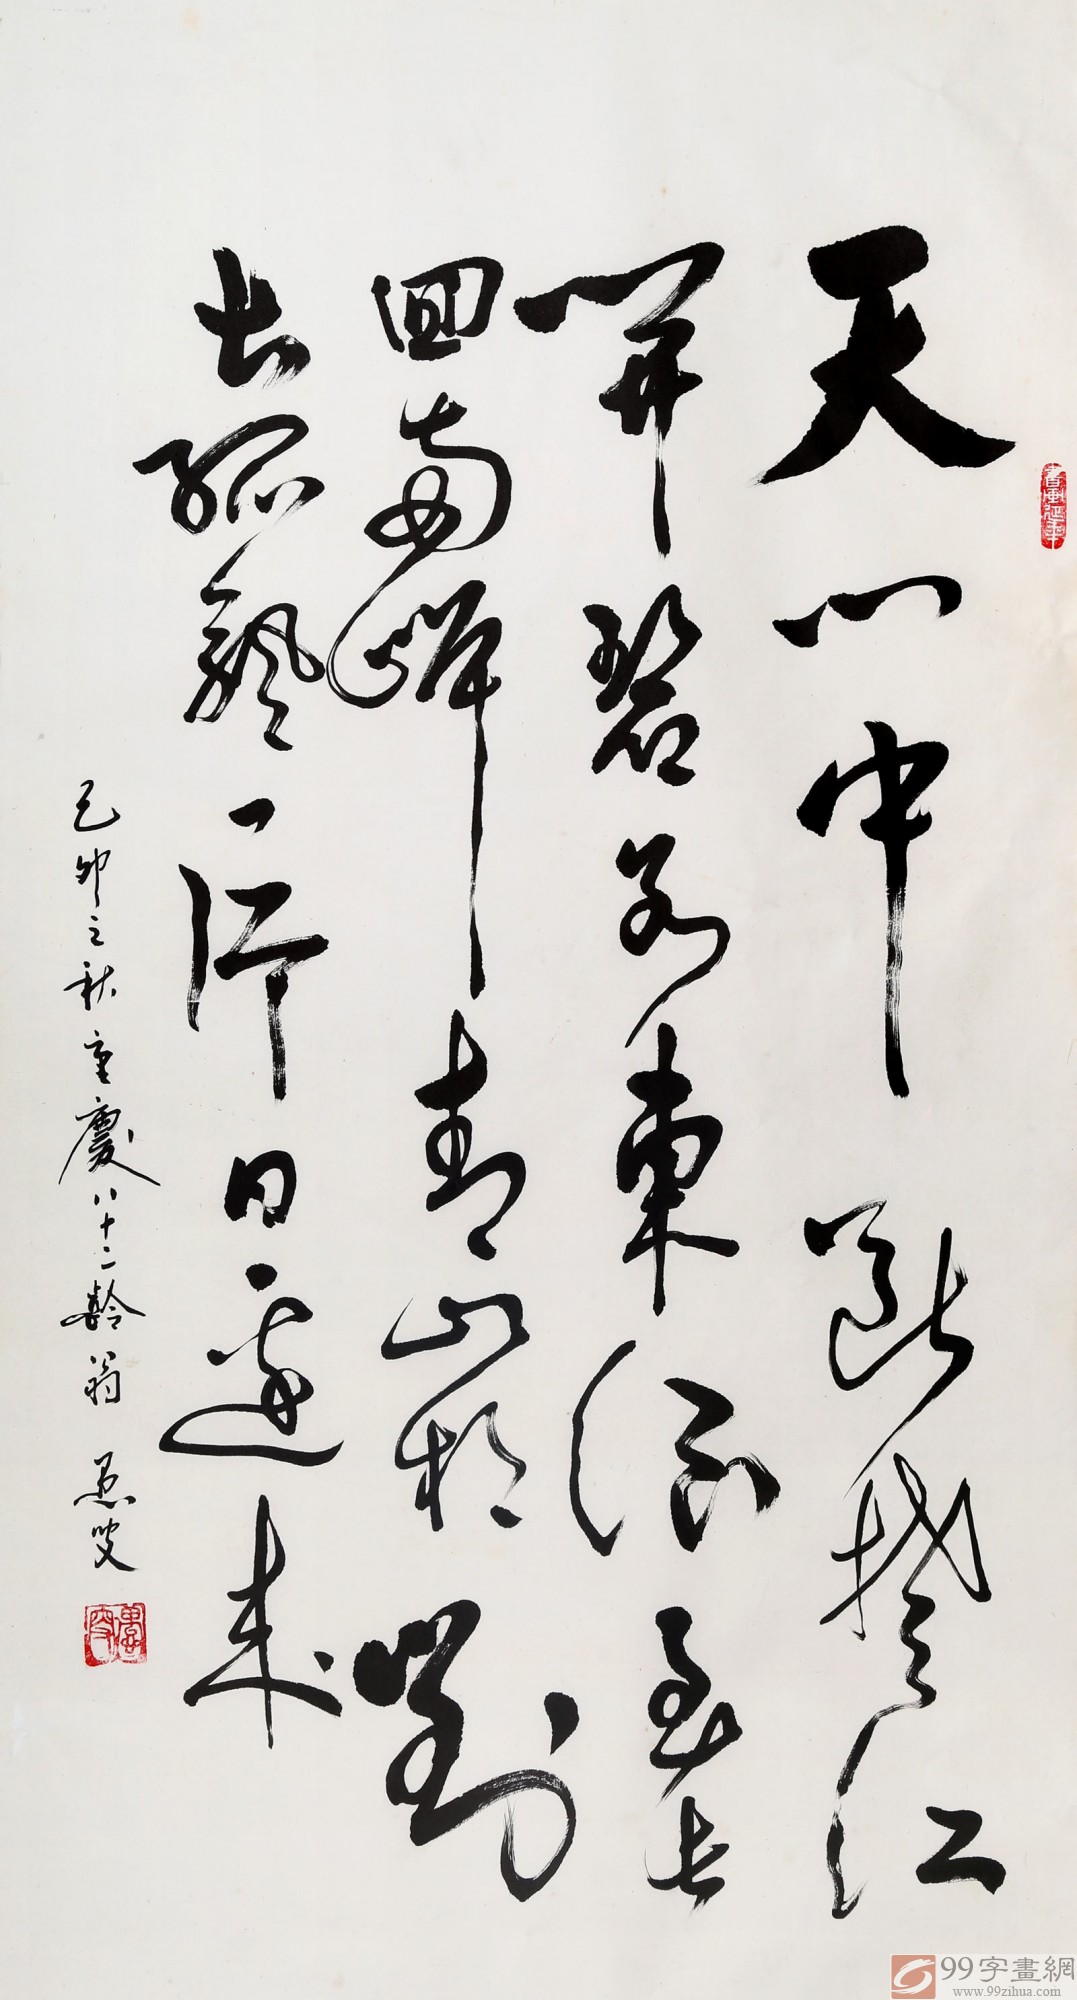 天門中斷楚江
開碧水東流至此
回兩岸青山相對
出孤颿一片日邊來
己卯之秋重慶八十二齡翁 愚叟
愚叟
99字畫網
www.99zihua.com